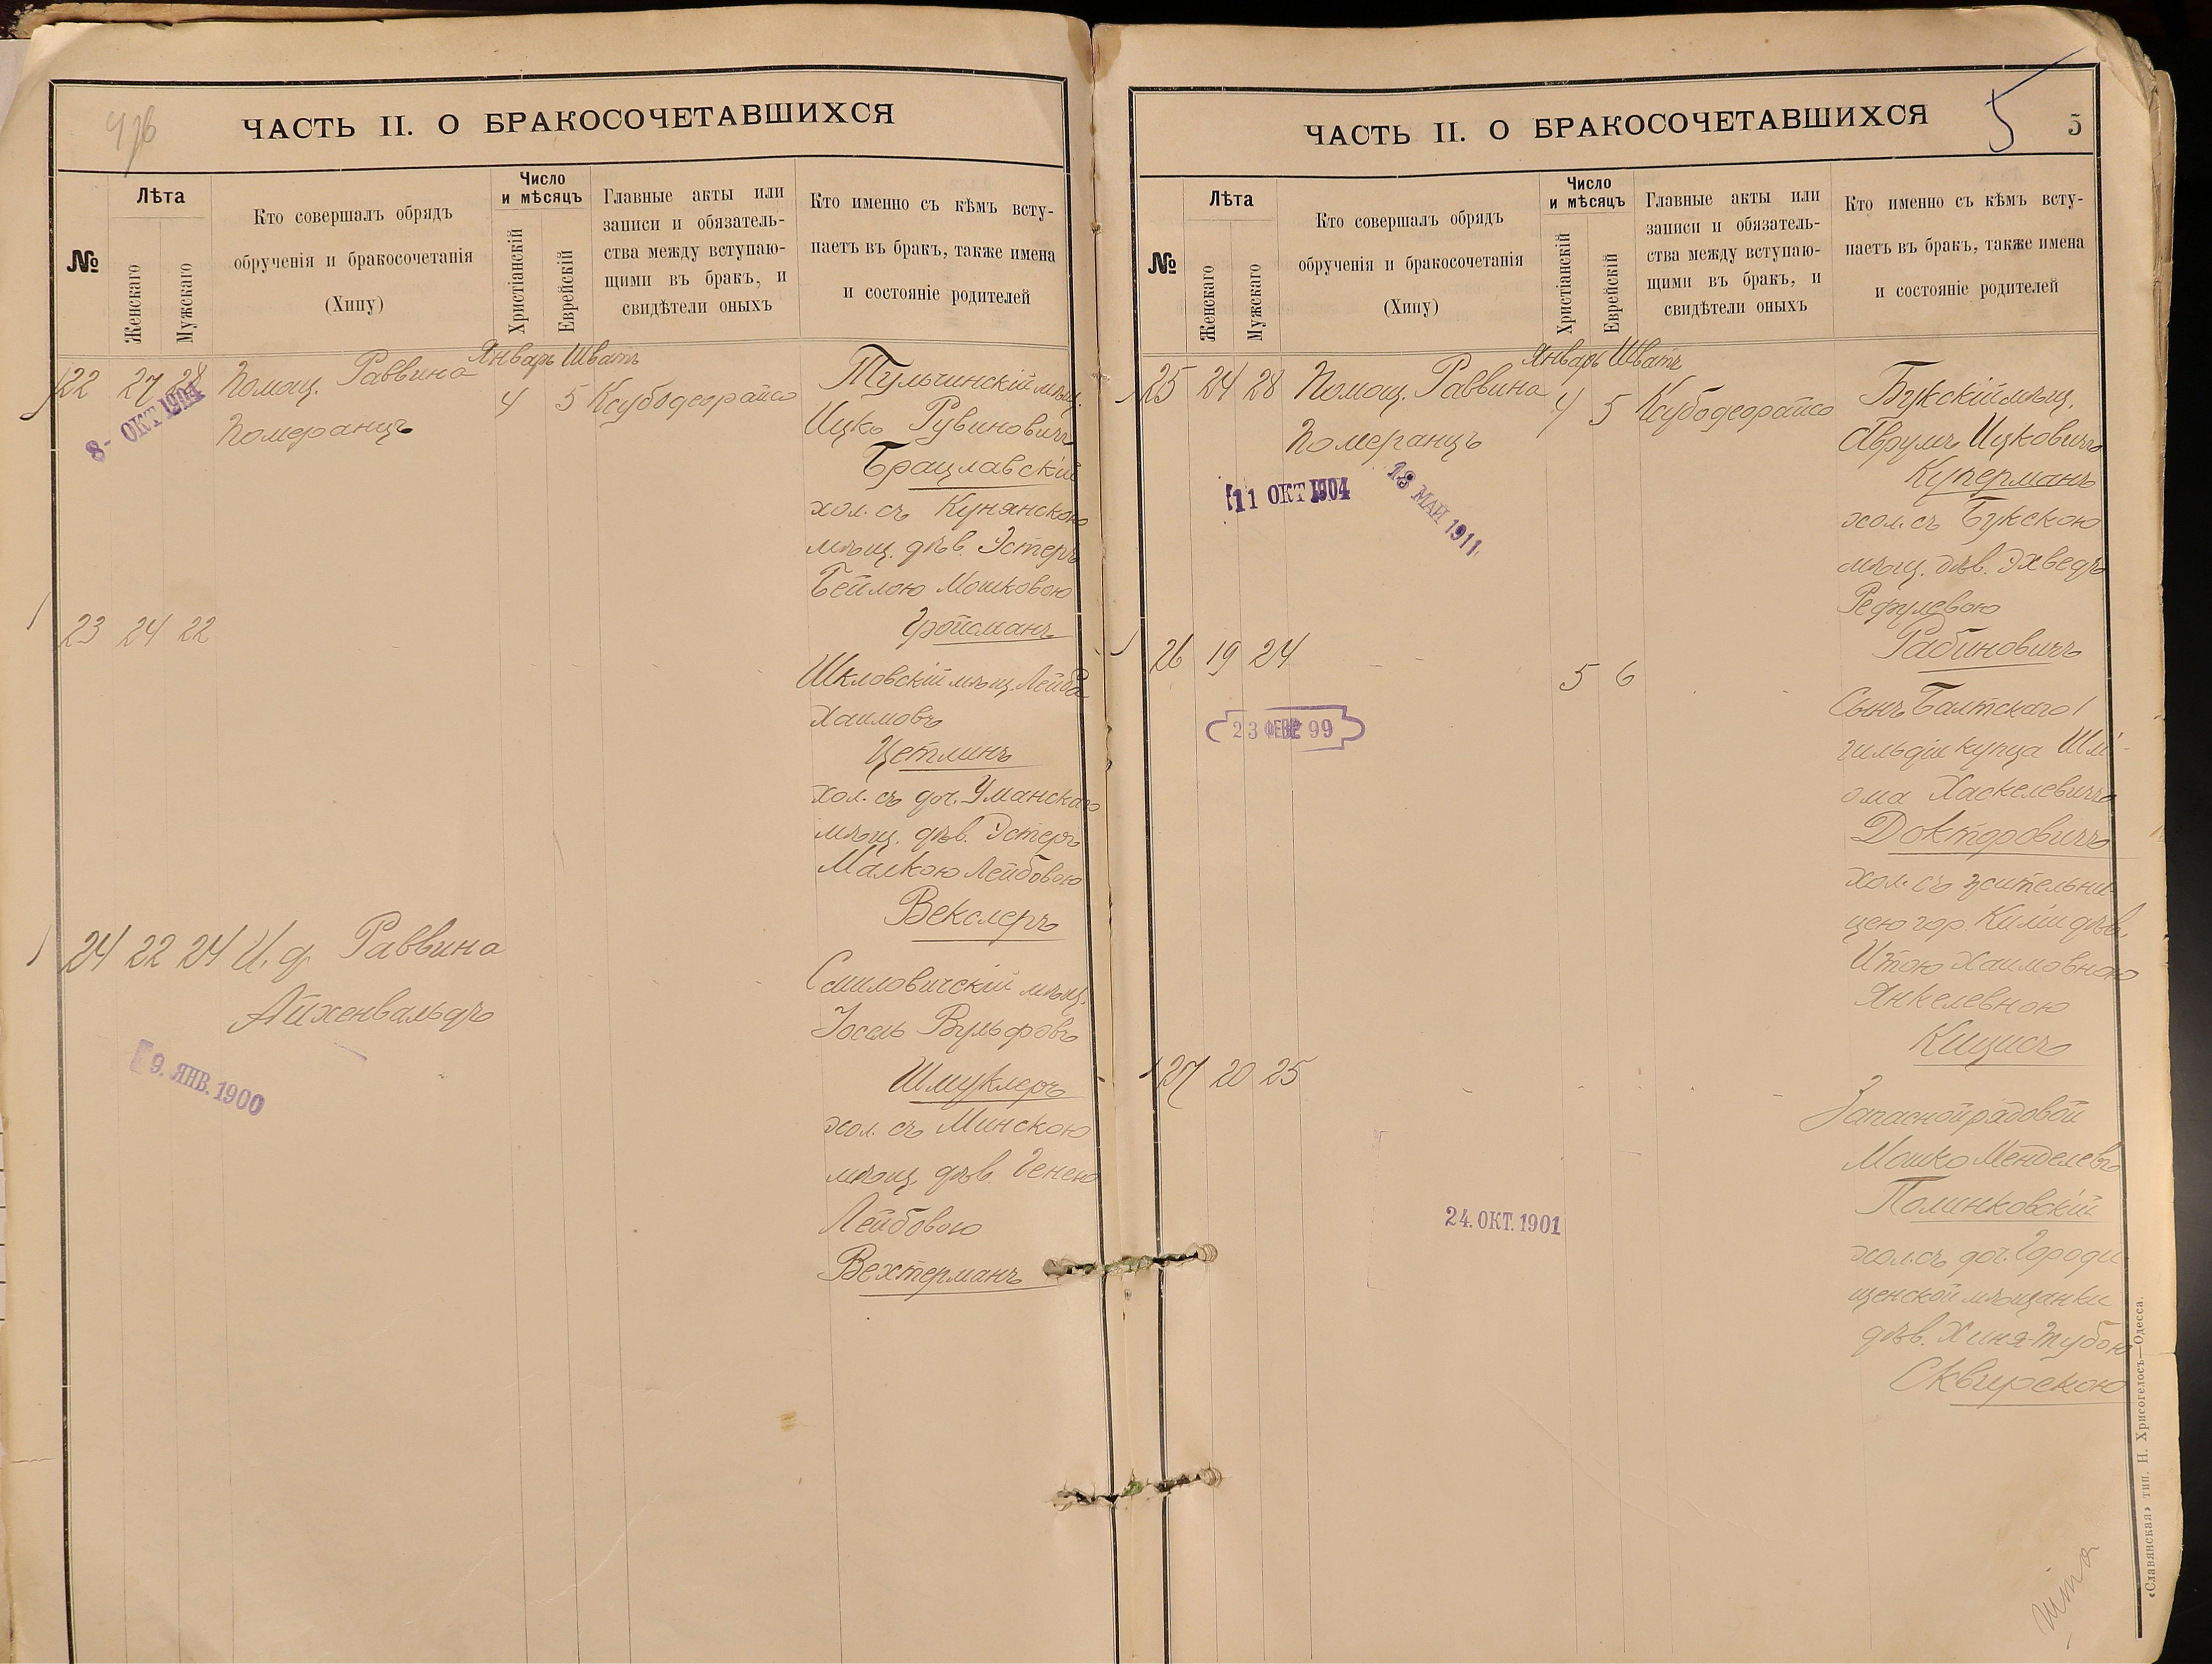 ЧАСТЬ II. О БРАКОСОЧЕТАВШИХСЯ
№
Лѣта
Женскаго
Мужскаго
Кто совершалъ обрядъ
обрученія и бракосочетанія
(Хипу)
Число
и мѣсяцъ
Христіанскій
Еврейскій
Главные акты или
записи и обязатель-
ства между вступаю-
щими въ бракъ, и
свидѣтели оныхъ
Кто именно съ кѣмъ всту-
паетъ въ бракъ, также имена
и состояніе родителей
Январь Шватъ
22 27 28 Помощ. Раввина 4 5 Ксубодеорайсо
Померанцъ
8- ОКТ 1904
Тульчинскій мѣщ.
Ицко Рувиновичъ
Брацлавскій
хол. съ Кунянскою
мѣщ. дѣв. Эстеръ
Бейлою Мошковою
Гройсманъ
23 24 22
Шкловскій мѣщ. Лейба
Хаимовъ
Цетлинъ
хол. съ доч. Уманскаго
мѣщ. дѣв. Эстеръ
Малкою Лейбовою
Векслеръ
24 22 24 И. д. Раввина
Айхенвальдъ
9. ЯНВ. 1900
Смиловичскій мѣщ.
Іосль Вульфовъ
Шмуклеръ
хол. съ Минскою
мѣщ. дѣв. Генею
Лейбовою
Вехтерманъ
ЧАСТЬ II. О БРАКОСОЧЕТАВШИХСЯ
5
5
№
Лѣта
Женскаго
Мужскаго
Кто совершалъ обрядъ
обрученія и бракосочетанія
(Хипу)
Число
и мѣсяцъ
Христіанскій
Еврейскій
Главные акты или
записи и обязатель-
ства между вступаю-
щими въ бракъ, и
свидѣтели оныхъ
Кто именно съ кѣмъ всту-
паетъ въ бракъ, также имена
и состояніе родителей
Январь Шватъ
25 24 28 Помощ. Раввина 4 5 Ксубодеорайсо
Померанцъ
11 ОКТ 1904
18 МАЙ 1911
Букскій мѣщ.
Аврумъ Ицковичъ
Куперманъ
хол. съ Букскою
мѣщ. дѣв. Эхведъ
Рефулевою
Рабиновичъ
26 19 24
5 6
23 ФЕВР 99
Сынъ Балтскаго 1
гильдіи купца Шлі-
ома Хаскелевичъ
Докторовичъ
хол. съ жительни-
цею гор. Киліи дѣв.
Итою Хаимовною
Янкелевною
Кицисъ
27 20 25
24. ОКТ. 1901
Запасной рядовой
Мошко Менделевъ
Полинковскій
хол. съ доч. Городи
щенской мѣщанки
дѣв. Хиня-Тубою
Сквирскою
«Славянская» тип. Н. Хрисогелосъ—Одесса.